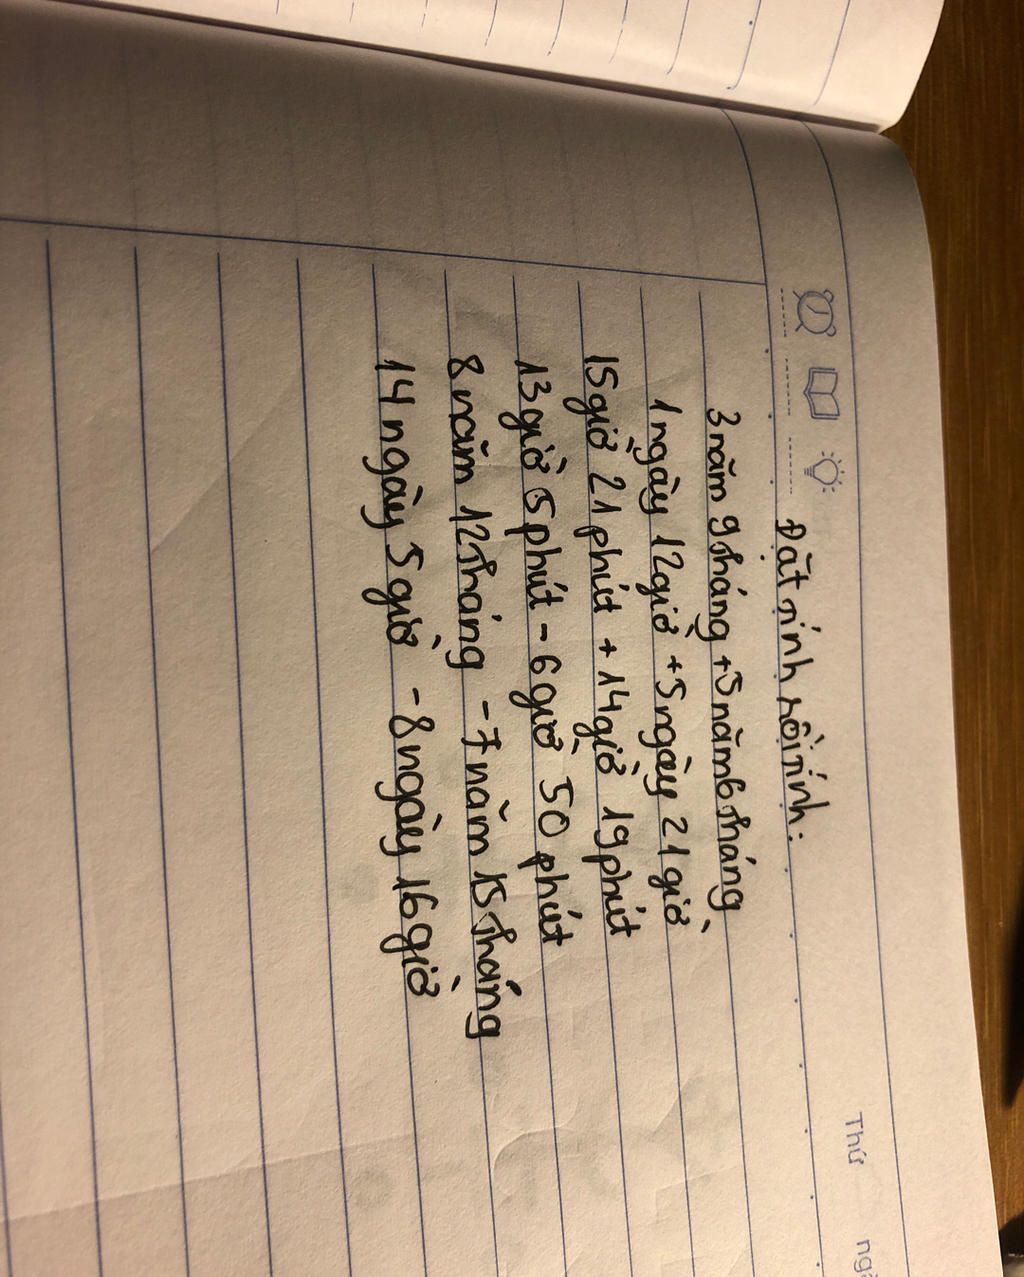 Thứ
ngà
Đặt tính rồi tính:
3 năm 9 tháng + 5 năm 6 tháng
1 ngày 12 giờ + 5 ngày 21 giờ
15 giờ 21 phút + 14 giờ 19 phút
13 giờ 5 phút - 6 giờ 50 phút
8 năm 12 tháng - 7 năm 15 tháng
14 ngày 5 giờ - 8 ngày 16 giờ